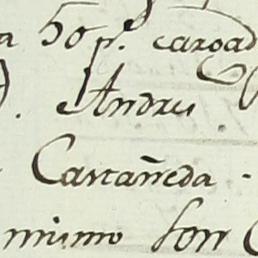 a 50 p.s cargad
Andres
Castañeda.
mismo son